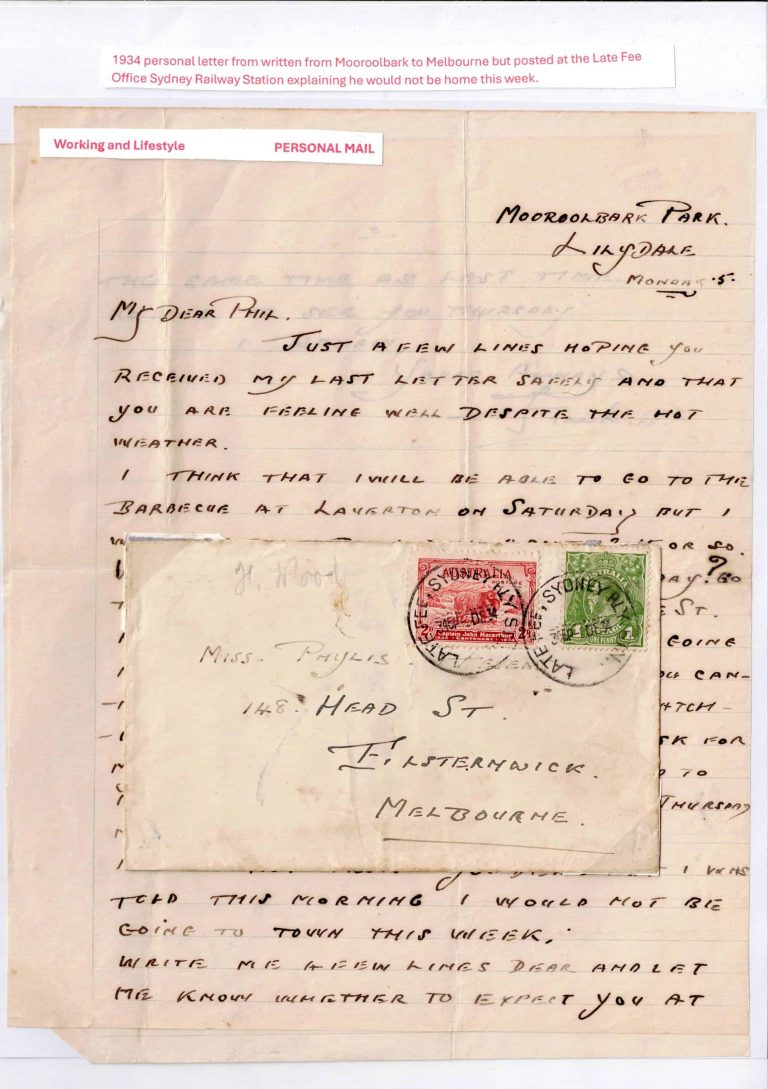 1934 personal letter from written from Mooroolbark to Melbourne but posted at the Late Fee
Office Sydney Railway Station explaining he would not be home this week.
Working and Lifestyle PERSONAL MAIL
MOOROOLBARK PARK.
LILYDALE
MONDAY .5.
MY DEAR PHIL.
JUST A FEW LINES HOPING YOU
RECEIVED MY LAST LETTER SAFELY AND THAT
YOU ARE FEELING WELL DESPITE THE HOT
WEATHER.
I THINK THAT I WILL BE ABLE TO GO TO THE
BARBECUE AT LAVERTON ON SATURDAY BUT I
OR SO.
GO
E ST.
GOING
CAN-
ATCH -
SK FOR
TO
THURSDAY
I WAS
TOLD THIS MORNING I WOULD NOT BE
GOING TO TOWN THIS WEEK.
WRITE ME A FEW LINES DEAR AND LET
ME KNOW WHETHER TO EXPECT YOU AT
THE SAME TIME AS LAST TIME
SEE YOU THURSDAY
H. Wood
AUSTRALIA
Captain John Macarthur
CENTENARY
LATE FEE, SYDNEY RLY S
AUSTRALIA
POSTAGE
ONE PENNY
LATE FEE, SYDNEY RLY
MISS. PHYLIS
148. HEAD ST.
ELSTERNWICK.
MELBOURNE.